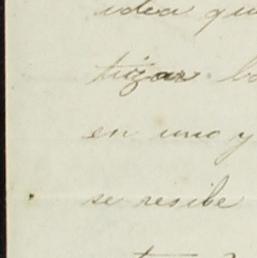 idea qu
tizar
en uno y
se resibe